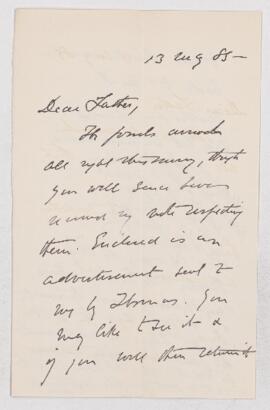 13 Aug 85 —
Dear Father,
The fossils arrived
all right this morning, though
you will since have
received my note respecting
them. Enclosed is an
advertisement sent to
me by Thomas. You
may like to see it &
if you will then